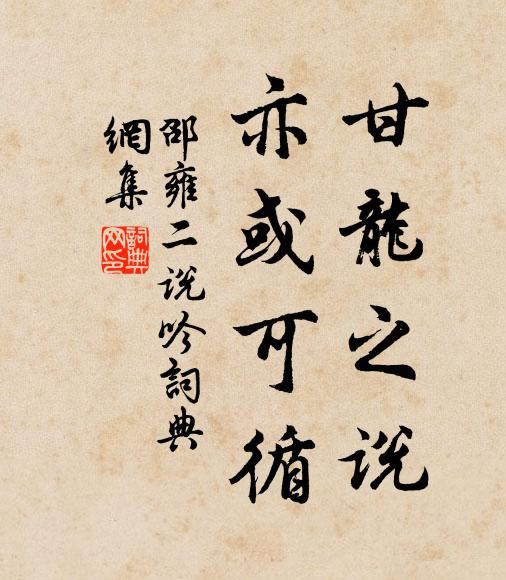 甘龍之説
亦或可循
邵雍二説吟詞典
網集
詞典
网印